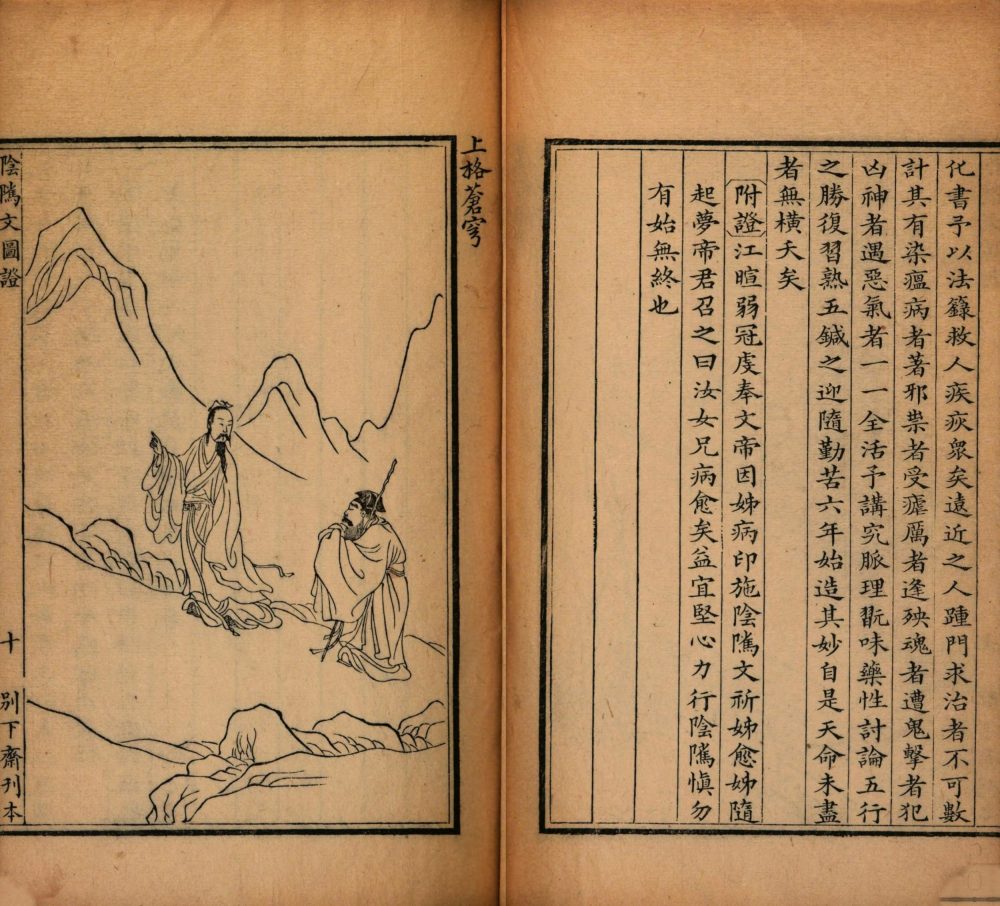 化書予以法籙救人疾疢衆矣遠近之人踵門求治者不可數
計其有染瘟病者著邪祟者受瘧厲者逢殃魂者遭鬼擊者犯
凶神者遇惡氣者一一全活予講究脈理翫味藥性討論五行
之勝復習熟五鍼之迎隨勤苦六年始造其妙自是天命未盡
者無橫夭矣
附證江暄弱冠虔奉文帝因姊病印施陰騭文祈姊愈姊隨
起夢帝君召之曰汝女兄病愈矣益宜堅心力行陰騭愼勿
有始無終也
上格蒼穹
陰騭文圖證
十
別下齋刊本